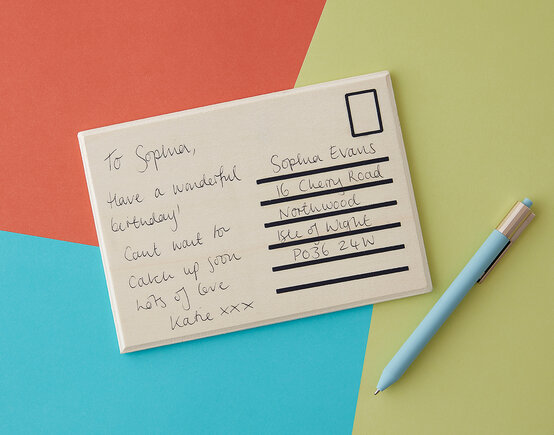 To Sophia,
Have a wonderful
birthday!
Cant wait to
catch up soon
Lots of love
Katie xxx
Sophia Evans
16 Cherry Road
Northwood
Isle of Wight
PO36 24W